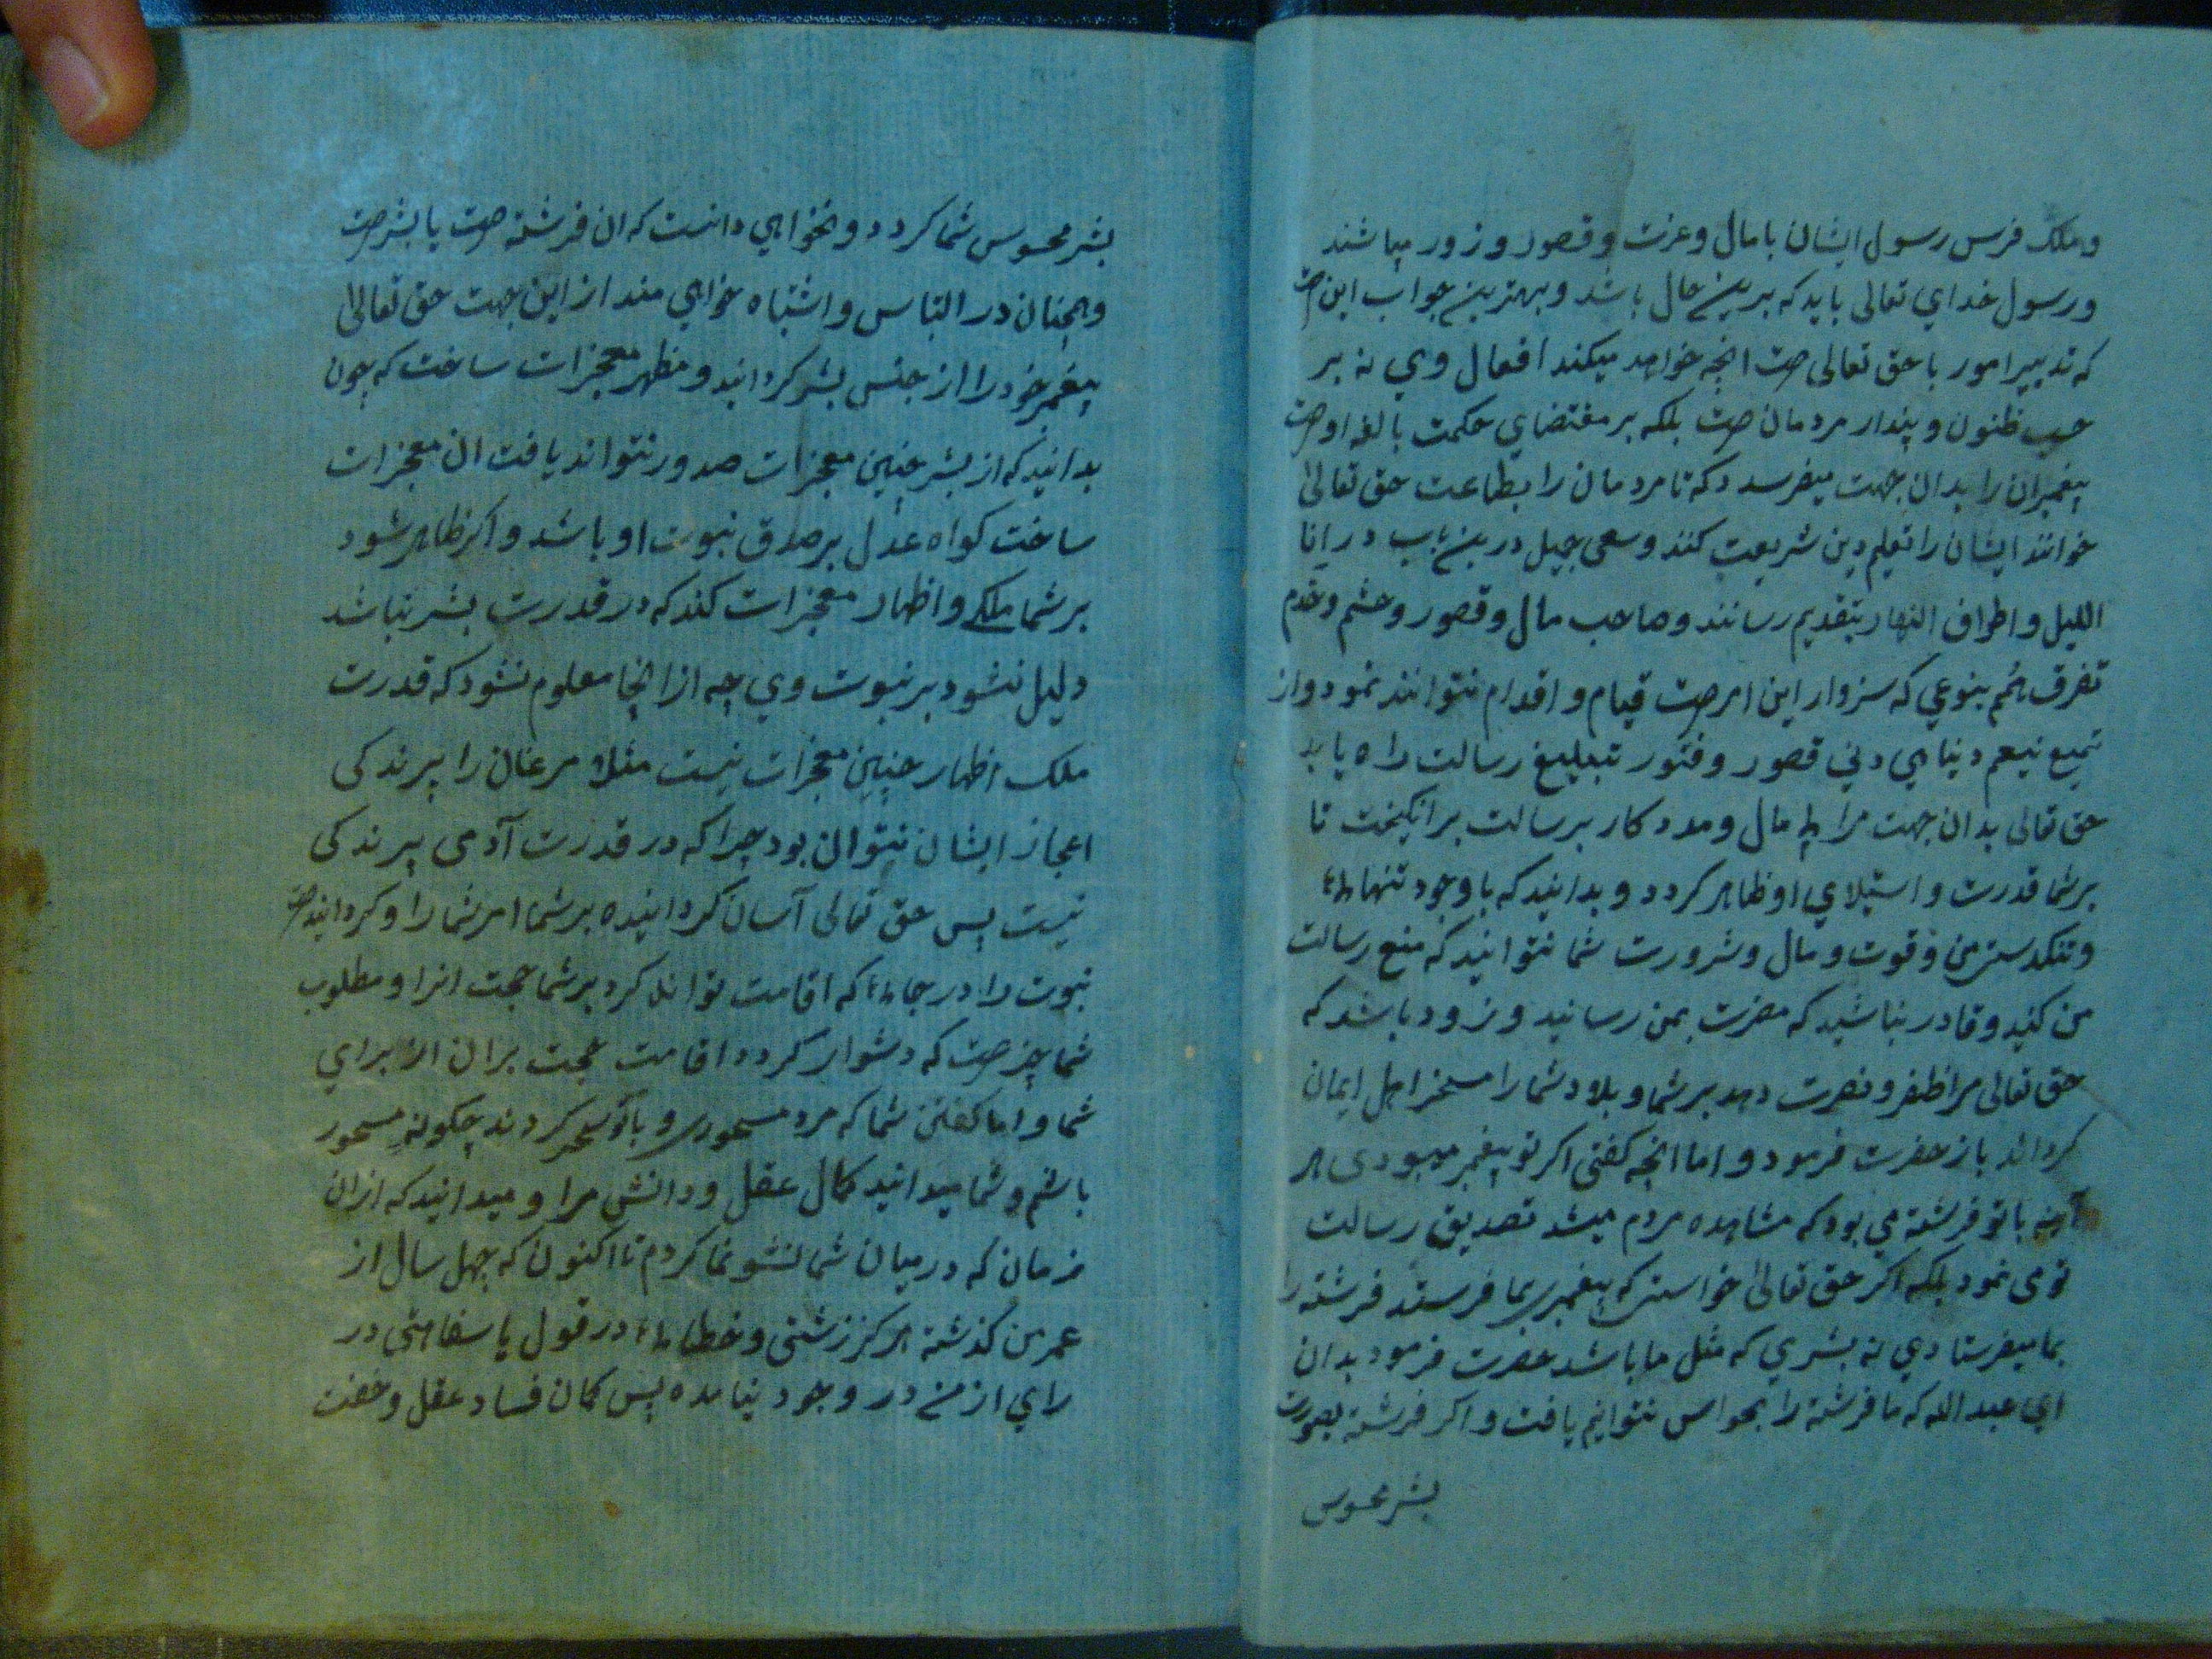 و ملک فرس رسول ایشان با مال و عزت و قصور و زور میباشند
و رسول خدای تعالی باید که برین حال باشد و بهترین جواب این
که تدبیر امور با حق تعالی است انچه خواهد میکند افعال وی نه بر
حسب ظنون و پندار مردمان است بلکه بر مقتضای حکمت بالغه او است
پیغمبران را بدان جهت میفرسد که تا مردمان را بطاعت حق تعالی
خوانند ایشان را تعلیم دین شریعت کنند و سعی جمیل درین باب در انا
اللیل و اطراف النهار بتقدیم رسانند و صاحب مال و قصور و حشم و خدم
بنوعی که سزوار این امر است قیام و اقدام نتوانند نمود و از
دنیای دنی قصور و فتور تبلیغ رسالت راه یابد
حق تعالی بدان جهت مرا مال و مددکار برسالت برانکیخت تا
بر شما قدرت و استیلای او ظاهر کردد و بدانید که با وجود
و تنکدستی من و قوت و مال و شرورت شما نتوانید که منع رسالت
من کنید و قادر نباشید که مضرت بمن رسانید و زود باشد که
حق تعالی مرا ظفر و نصرت دهد بر شما و بلاد شما را مسخر اهل ایمان
کرداند باز حضرت فرمود و اما انچه کفتی اکر تو پیغمبر میبودی هر
آینه با تو فرشته می بود که مشاهده مردم میشد تصدیق رسالت
تو می نمود بلکه اکر حق تعالی خواستی که پیغمبری بما فرستد فرشته را
بما میفرستادی نه بشری که مثل ما باشد حضرت فرمود بدان
ای عبد الله که ما فرشته را بحواس نتوانیم یافت و اکر فرشته بصورت
بشر محسوس
بشر محسوس شما کردد و نخواهی دانست که ان فرشته است یا بشر است
و همچنان در التباس و اشتباه خواهی مند از این جهت حق تعالی
پیغمبر خود را از جنس بشر کردانید و مظهر معجزات ساخت که چون
بدانید که از بشر چنین معجزات صدور نتواند یافت ان معجزات
ساخت کواه عدل بر صدق نبوت او باشد و اکر ظاهر شود
بر شما ملکی و اظهار معجزات کند که در قدرت بشر نباشد
دلیل نشود بر نبوت وی چه از انجا معلوم نشود که قدرت
ملک اظهار چنین معجزات نیست مثلا مرغان را پرندکی
اعجاز ایشان نتوان بود چرا که در قدرت آدمی پرندکی
نیست پس حق تعالی آسان کردانیده بر شما امر شما را و کردانیده است
نبوت را در که اقامت تواند کرد بر شما حجت انرا و مطلوب
شما چیز است که دشوار کردد اقامت حجت بران از برای
شما و اما کفتن شما که مرد مسحوری و کردند چکونه مسحور
باشم و شما میدانید کمال عقل و دانش مرا و میدانید که از ان
زمان که در میان شما نشو نما کردم تا اکنون که چهل سال از
عمر من کذشته هرکز زشتی و در قول یا سفاهتی در
رای از من در وجود نیامده پس کمان فساد عقل و خفت